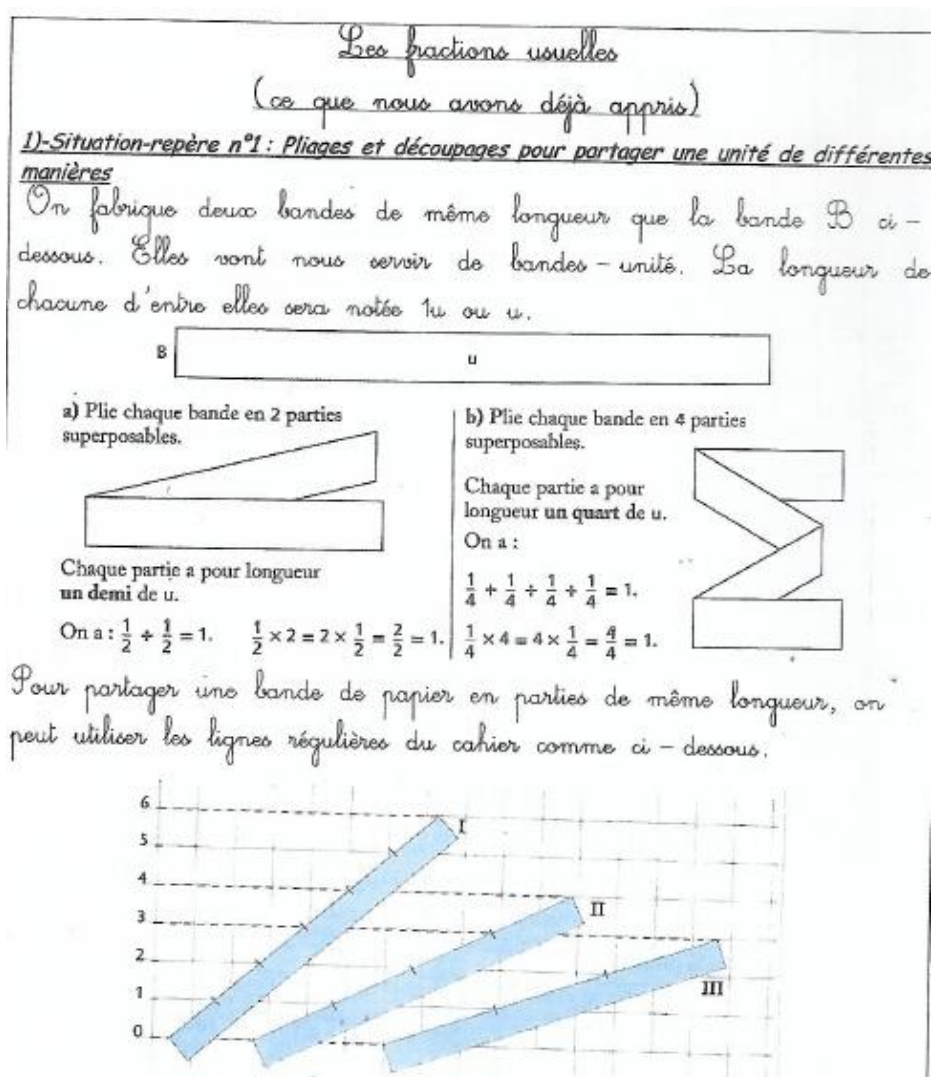 Les fractions usuelles
(ce que nous avons déjà appris)
1)-Situation-repère n°1 : Pliages et découpages pour partager une unité de différentes
manières
On fabrique deux bandes de même longueur que la bande B ci-
dessous. Elles vont nous servir de bandes-unité. La longueur de
chacune d'entre elles sera notée 1u ou u.
B u
a) Plie chaque bande en 2 parties
superposables.
Chaque partie a pour longueur
un demi de u.
On a : 1/2 + 1/2 = 1. 1/2 × 2 = 2 × 1/2 = 2/2 = 1.
b) Plie chaque bande en 4 parties
superposables.
Chaque partie a pour
longueur un quart de u.
On a :
1/4 + 1/4 + 1/4 + 1/4 = 1.
1/4 × 4 = 4 × 1/4 = 4/4 = 1.
Pour partager une bande de papier en parties de même longueur, on
peut utiliser les lignes régulières du cahier comme ci-dessous.
6
I
5
4
II
3
2
III
1
0